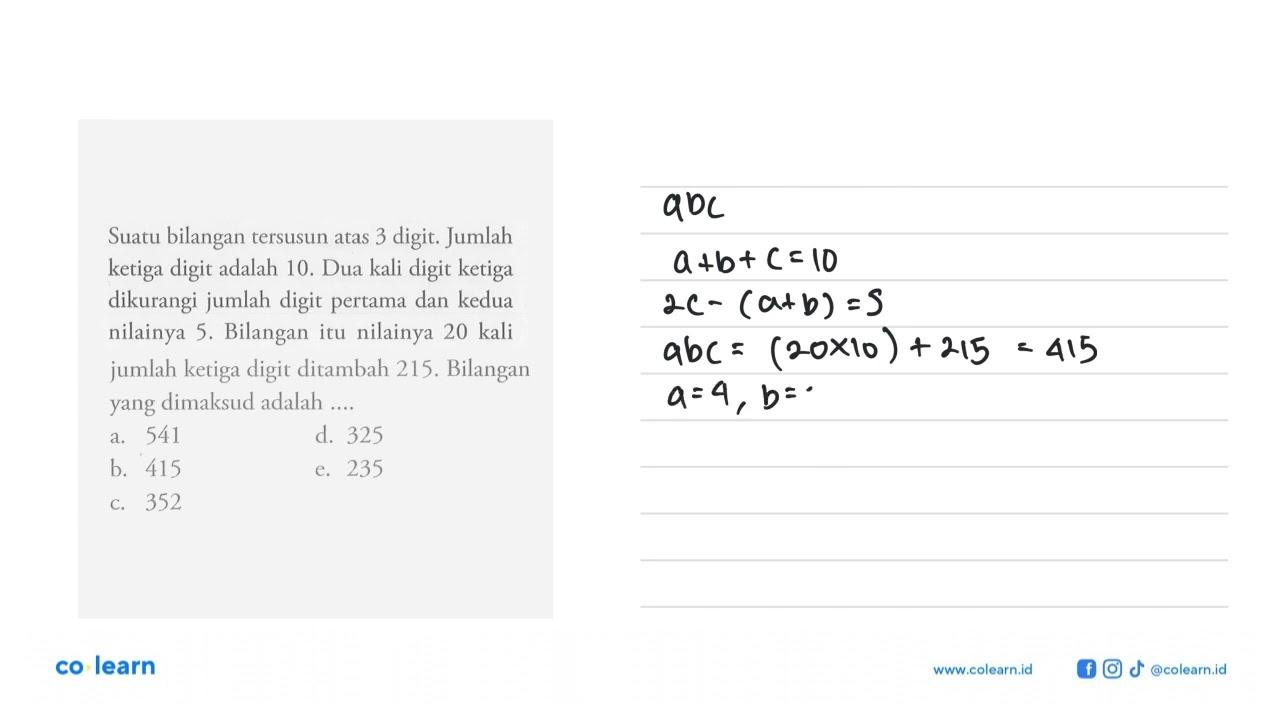 Suatu bilangan tersusun atas 3 digit. Jumlah
ketiga digit adalah 10. Dua kali digit ketiga
dikurangi jumlah digit pertama dan kedua
nilainya 5. Bilangan itu nilainya 20 kali
jumlah ketiga digit ditambah 215. Bilangan
yang dimaksud adalah ....
a. 541 d. 325
b. 415 e. 235
c. 352
abc
a+b+c=10
2c-(a+b)=5
abc = (20×10) + 215 = 415
a=4, b=
co learn
www.colearn.id @colearn.id